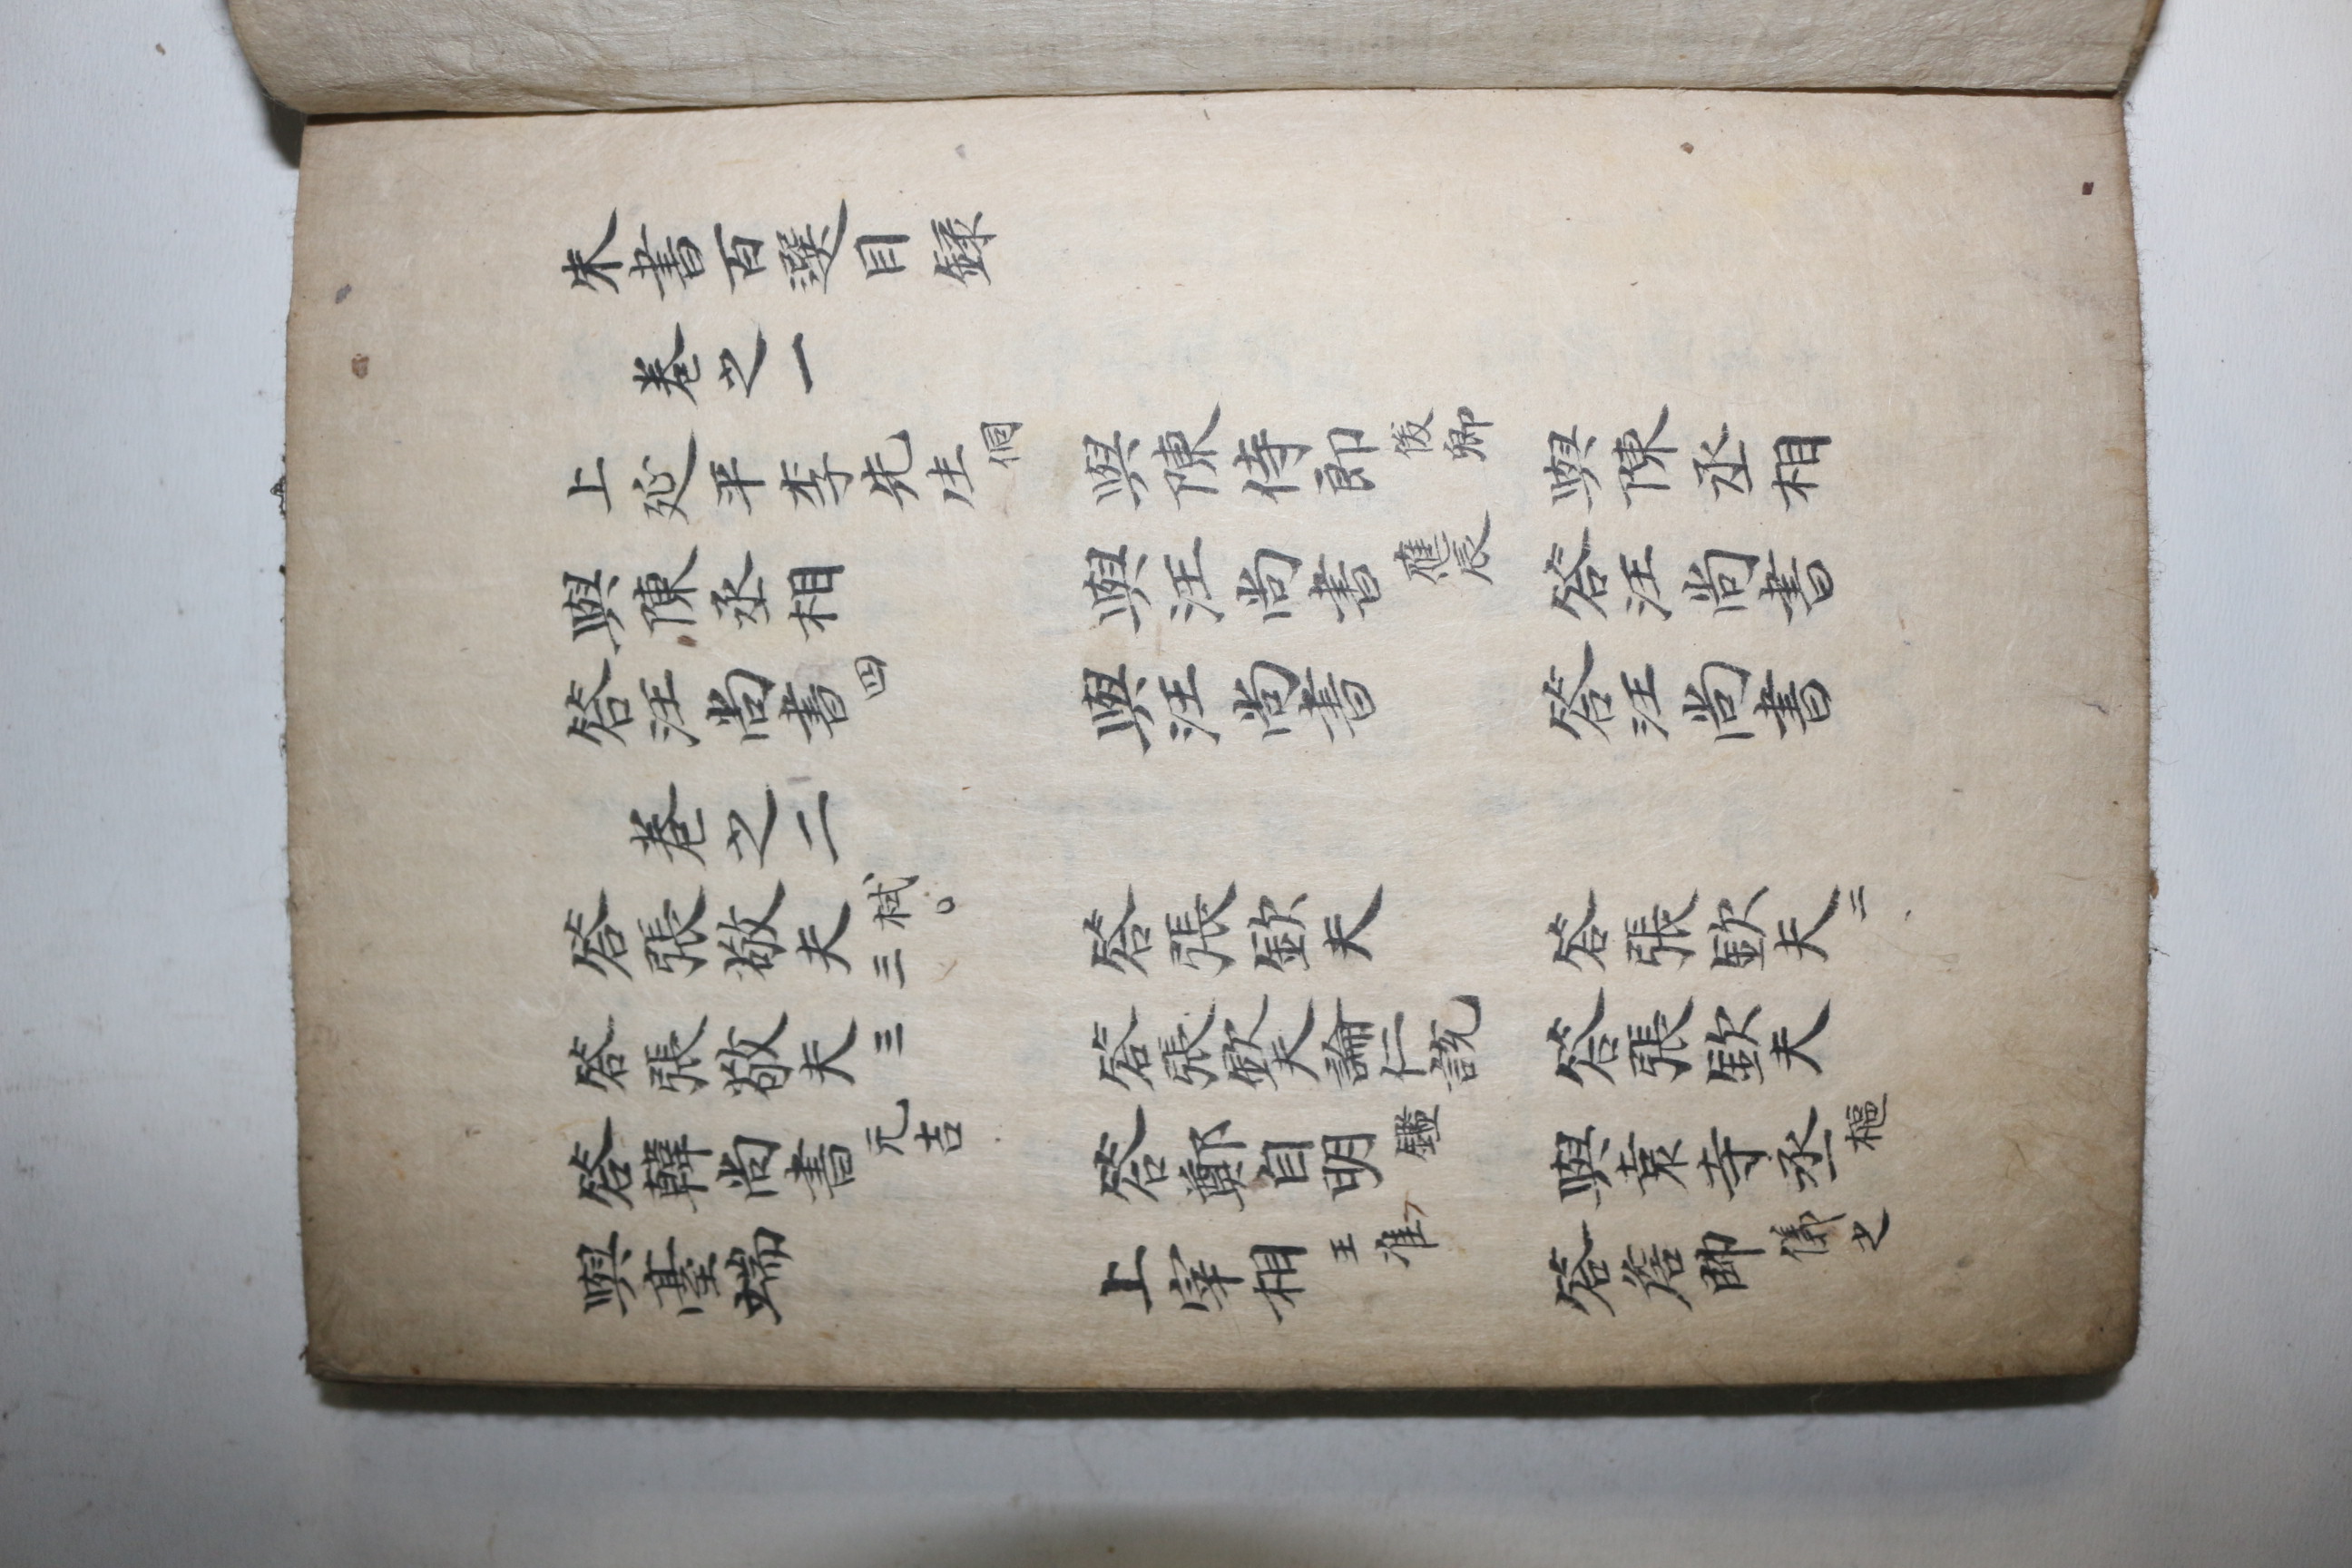 朱書百選目錄
卷之一
上延平李先生侗 與陳侍郎俊卿 與陳丞相
與陳丞相 與汪尚書應辰 答汪尚書
答汪尚書四 與汪尚書 答汪尚書
卷之二
答張敬夫栻。三 答張欽夫 答張欽夫二
答張敬夫三 答張欽夫論仁說 答張欽夫
答韓尚書元吉 答鄭自明鑑 與袁寺丞樞
與臺端 上宰相王准 答詹帥儀之